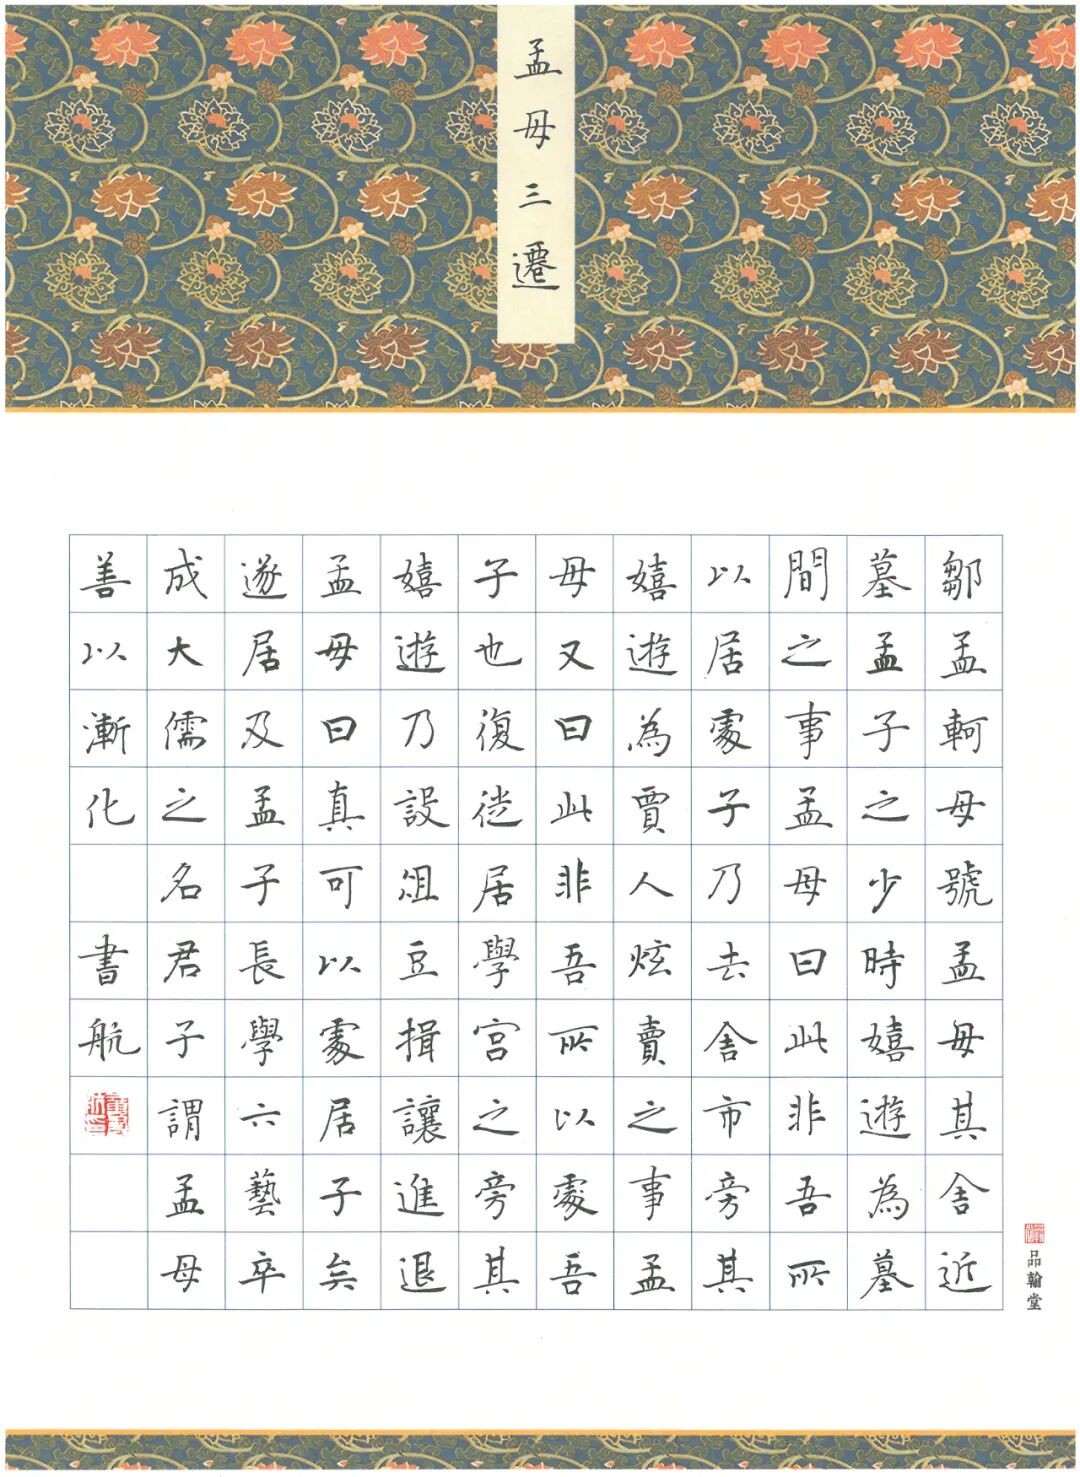 孟母三遷
鄒孟軻母號孟母其舍近
墓孟子之少時嬉遊為墓
間之事孟母曰此非吾所
以居處子乃去舍市旁其
嬉遊為賈人炫賣之事孟
母又曰此非吾所以處吾
子也復徙居學宮之旁其
嬉遊乃設俎豆揖讓進退
孟母曰真可以處居子矣
遂居及孟子長學六藝卒
成大儒之名君子謂孟母
善以漸化 書航
品翰堂